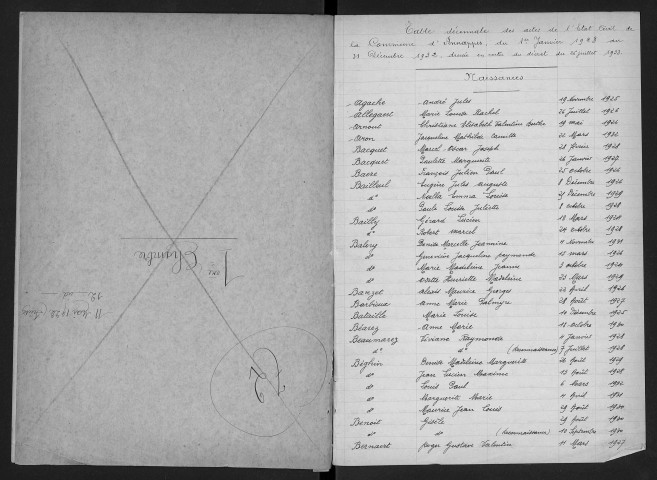 Table décennale des actes de l'Etat Civil de
la Commune d'Annappes, du 1er Janvier 1923 au
31 Décembre 1932, dressée en vertu du décret du juillet 1933.
Naissances
Agache André Jules 19 Novembre 1925
Allegaert Marie Louise Rachel 26 Juillet 1926
Arnout Christiane Elisabeth Valentine Berthe 19 mai 1926
Aron Jacqueline Mathilde Camille 22 Mars 1932
Bacquet Marcel Oscar Joseph 28 février 1928
Bacquet Paulette Marguerite 26 Janvier 1927
Baere François Julien Paul 25 octobre 1926
Bailleul Eugène Jules Auguste 8 Décembre 1926
do Nelly Emma Louise 21 Décembre 1929
do Paule Louise Juliette 8 octobre 1928
Bailly Gérard Lucien 13 Mars 1924
do Robert Marcel 24 octobre 1928
Balery Denise Marcelle Jeannine 11 Novembre 1931
do Geneviève Jacqueline Raymonde 15 mars 1926
do Marie Madeleine Jeanne 3 octobre 1924
do Odette Henriette Madeleine 22 Mars 1929
Banzet Alexis Maurice Georges 22 Avril 1926
Barbieux Anne Marie Palmyre 28 Août 1927
Bataille Marie Louise 14 Décembre 1925
Béarez Anne Marie 18 octobre 1930
Beaumarez Viviane Raymonde 11 Janvier 1928
do do (Reconnaissance) 7 Juillet 1928
Béghin Denise Madeleine Marguerite 26 Août 1929
do Jean Lucien Maxime 13 Août 1928
do Louis Paul 6 Mars 1932
do Marguerite Marie 11 Avril 1931
do Maurice Jean Louis 29 Août 1930
Benoit Gisèle 29 Août 1930
do do (Reconnaissance) 10 Septembre 1930
Bernaert Roger Gustave Valentin 11 Mars 1927